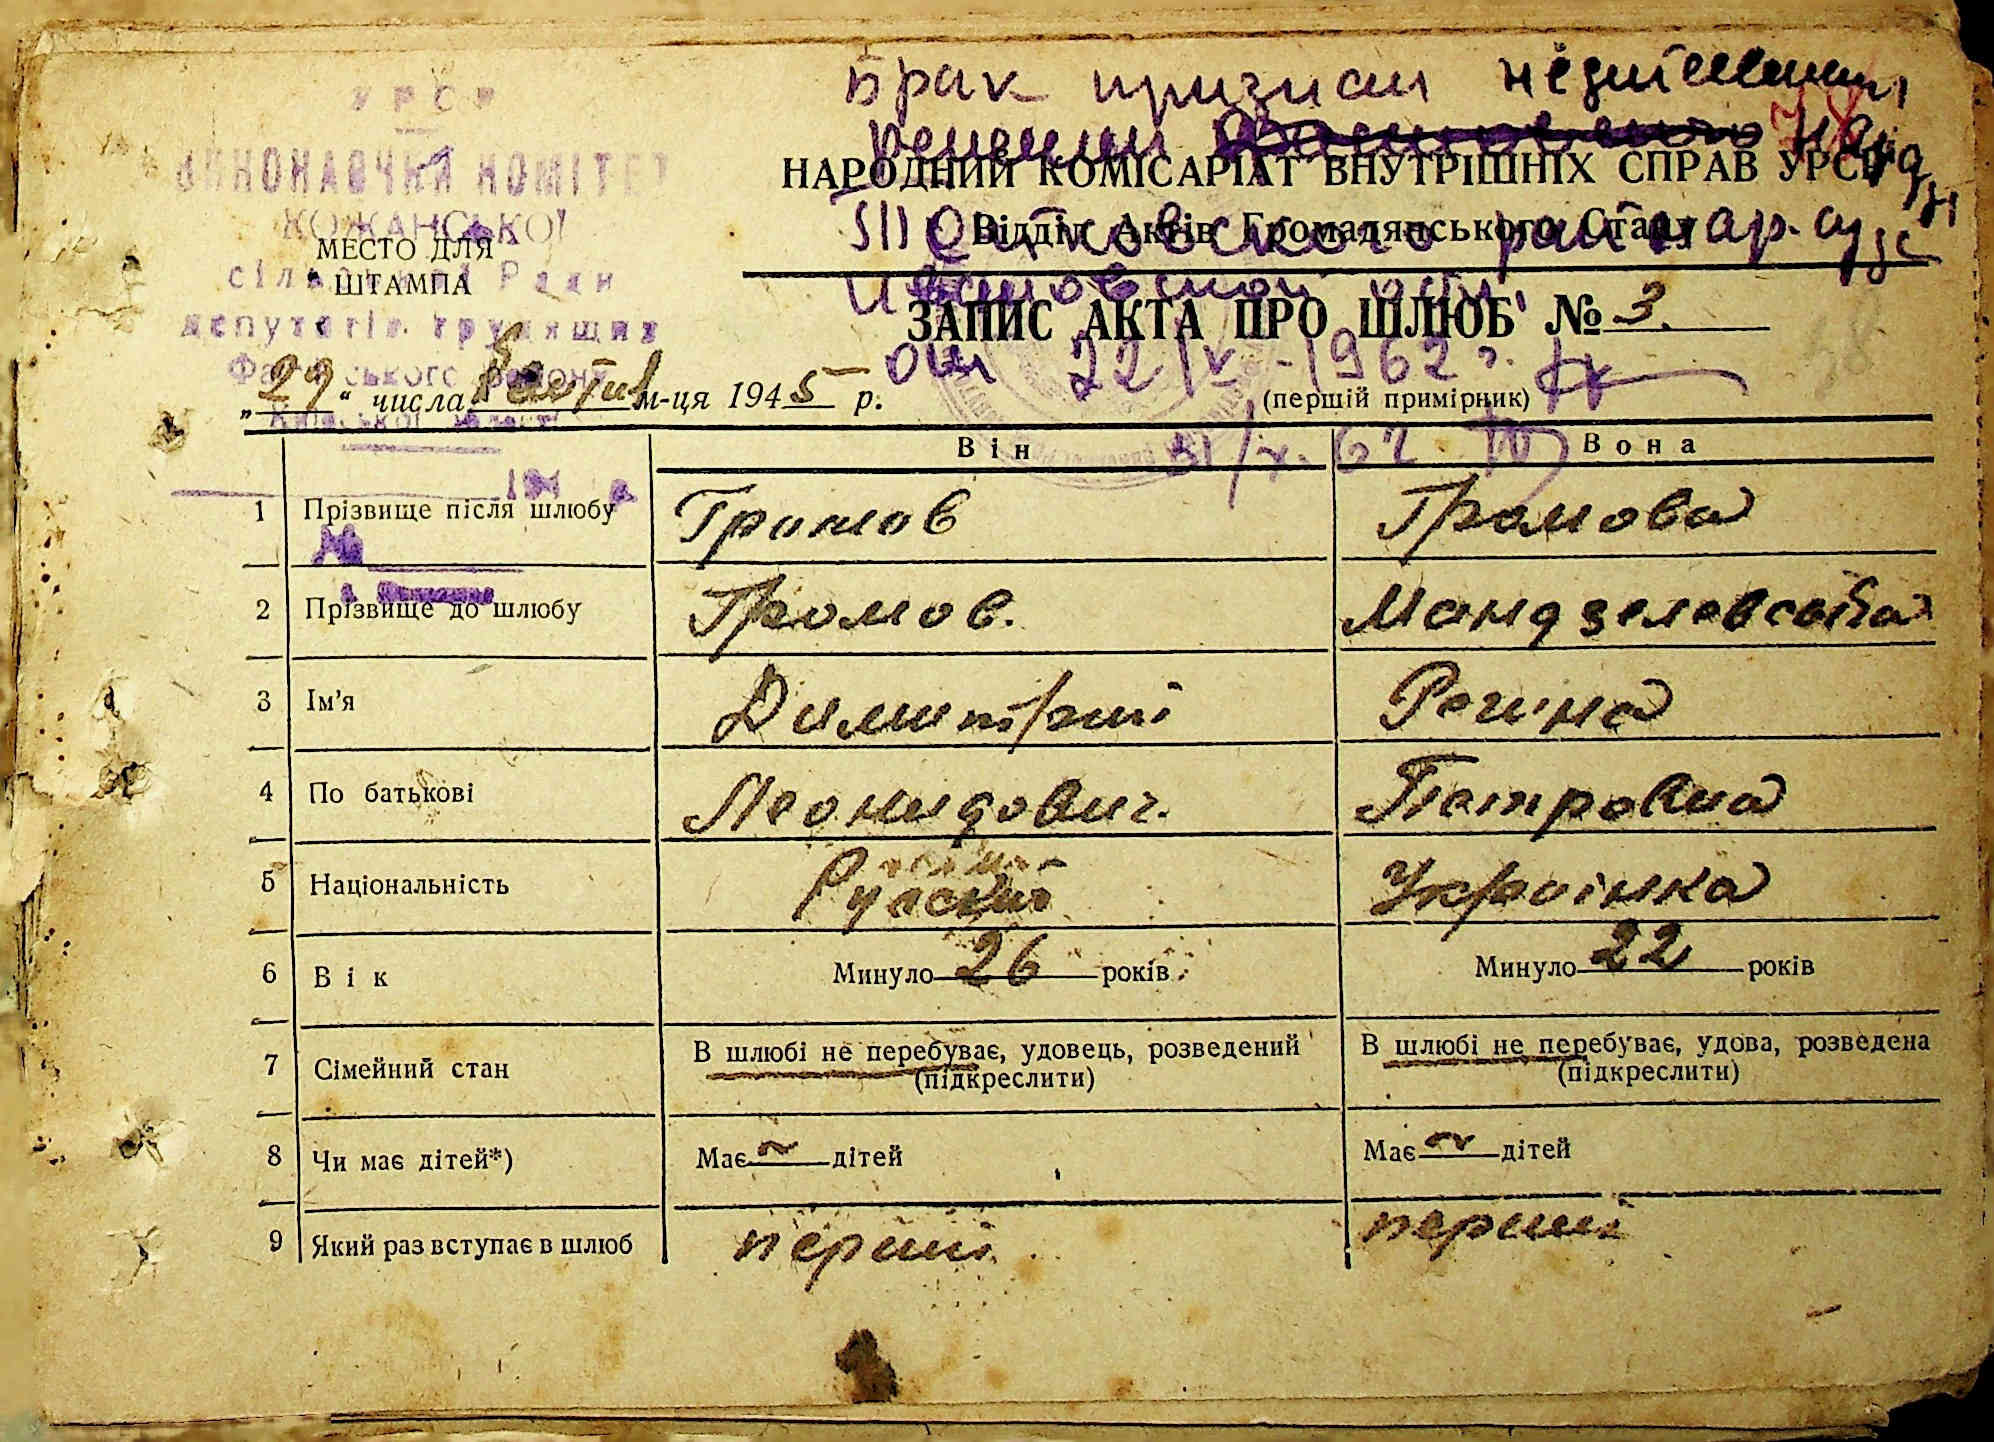 УРСР
ВИКОНАВЧИЙ КОМІТЕТ
КОЖАНСЬКОЇ
сільської Ради
депутатів трудящих
району
Київської області
194 р.
№
МЕСТО ДЛЯ
ШТАМПА
Брак признан недействит.
решением нарсуд
нар. суд
Ивановской обл.
от 22/V-1962 г.
НАРОДНИЙ КОМІСАРІАТ ВНУТРІШНІХ СПРАВ УРСР
Відділ Актів Громадянського Стану
ЗАПИС АКТА ПРО ШЛЮБ № 3.
„29“ числа м-ця 1945 р.
(перший примірник)
Він Вона
1 Прізвище після шлюбу Громов Громова
2 Прізвище до шлюбу Громов. Мандзелевська
3 Ім'я Димитрий Регина
4 По батькові Леонидович. Петровна
5 Національність Русский Украінка
6 Вік Минуло 26 років Минуло 22 років
7 Сімейний стан В шлюбі не перебуває, удовець, розведений В шлюбі не перебуває, удова, розведена
(підкреслити) (підкреслити)
8 Чи має дітей*) Має ~ дітей Має ~ дітей
9 Який раз вступає в шлюб перший перший